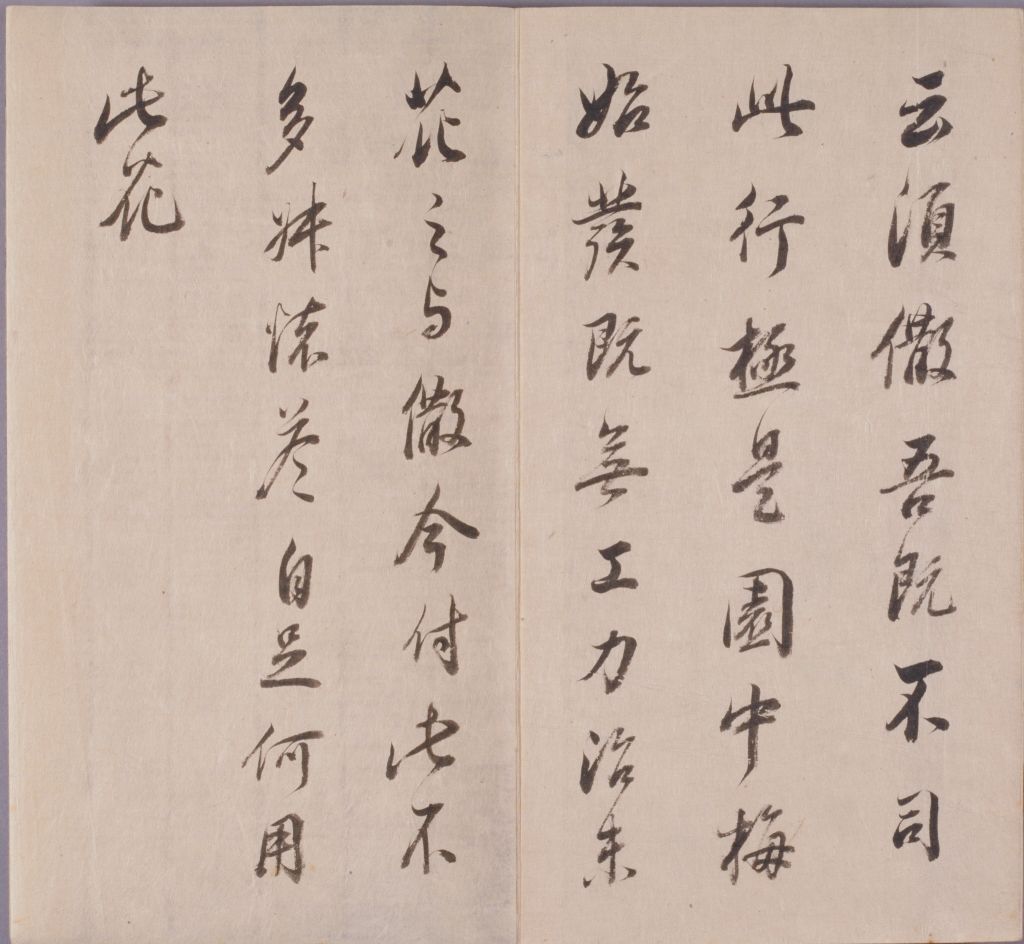 云須儆吾既不司
此行極是園中梅
始發既無工力治未
花之与儆今付此不
多懷自足何用
此花